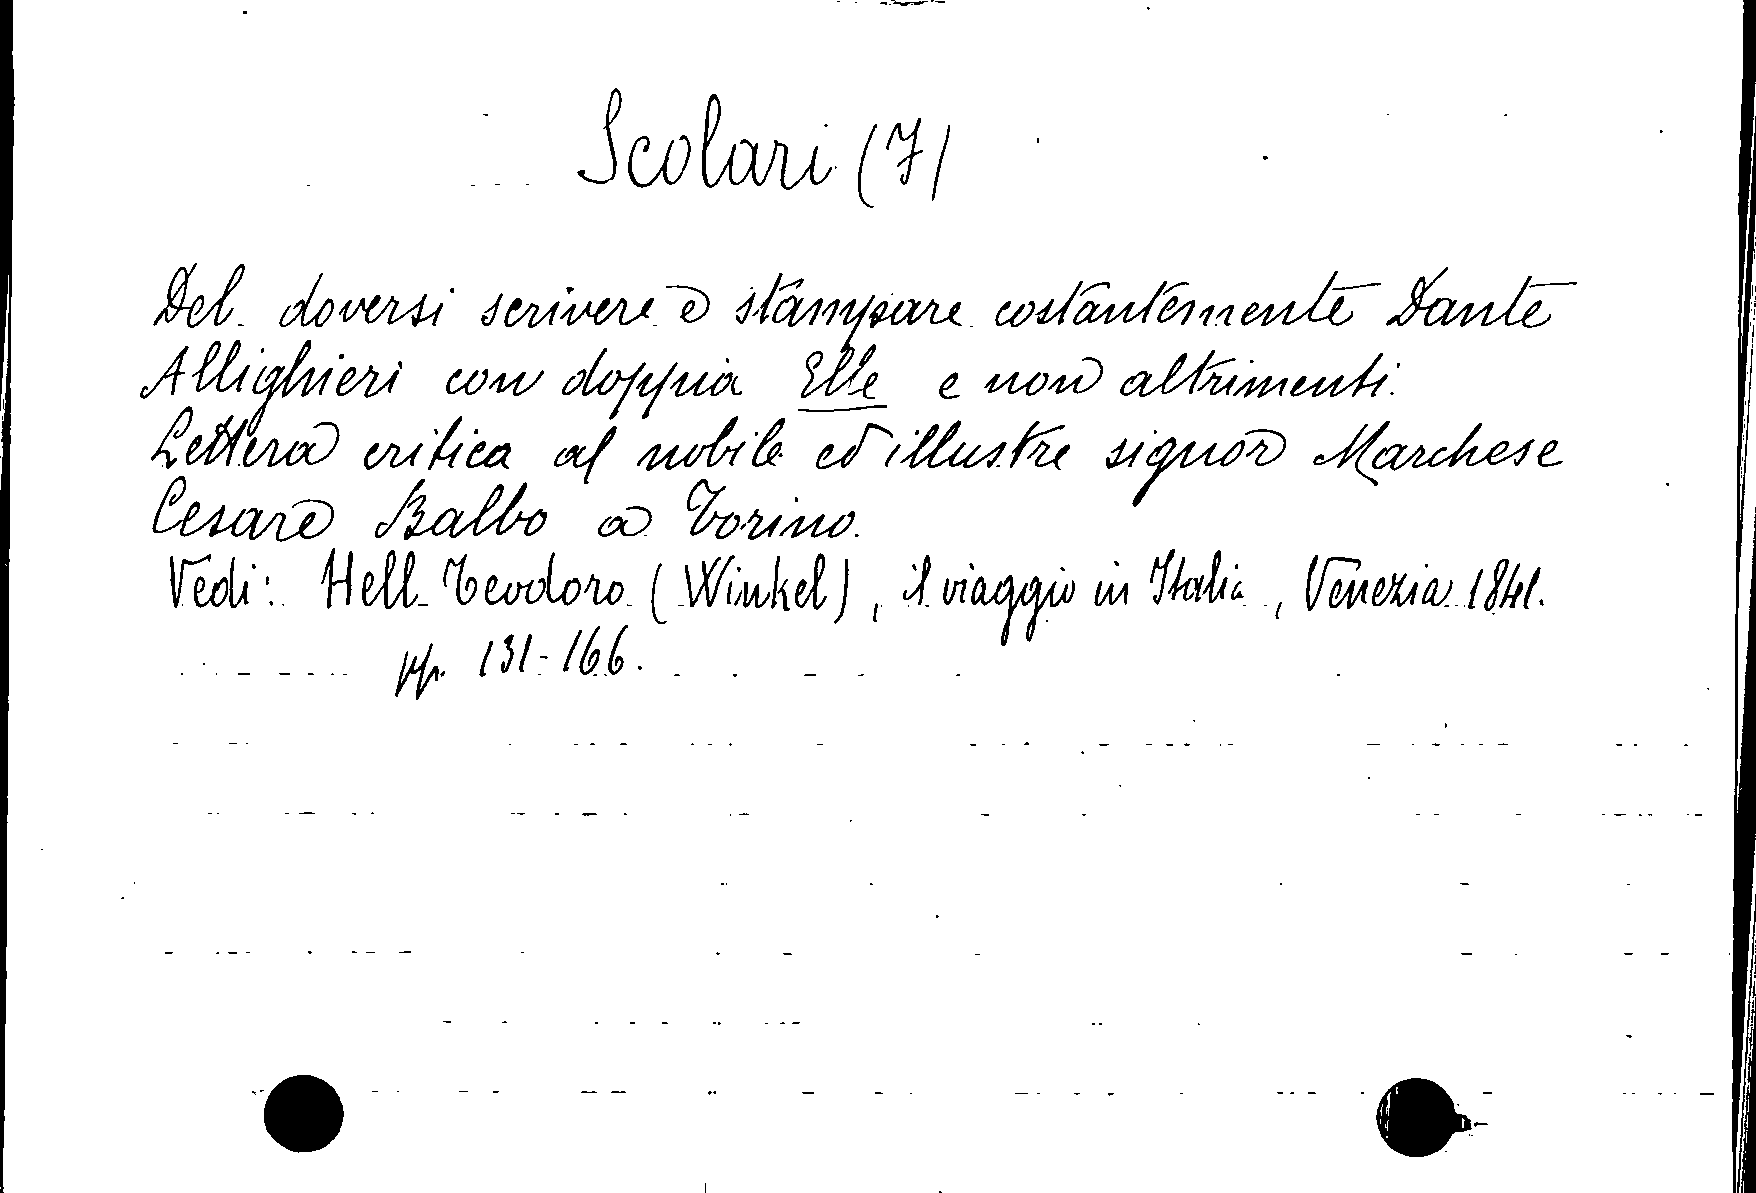 Scolari (7)
Del doversi scrivere e stampare costantemente Dante
Allighieri con doppia Elle e non altrimenti.
Lettera critica al nobile ed illustre signor Marchese
Cesare Balbo a Torino.
Vedi: Hell Teodoro (Winkel), il viaggio in Italia, Venezia 1841.
pp. 131-166.